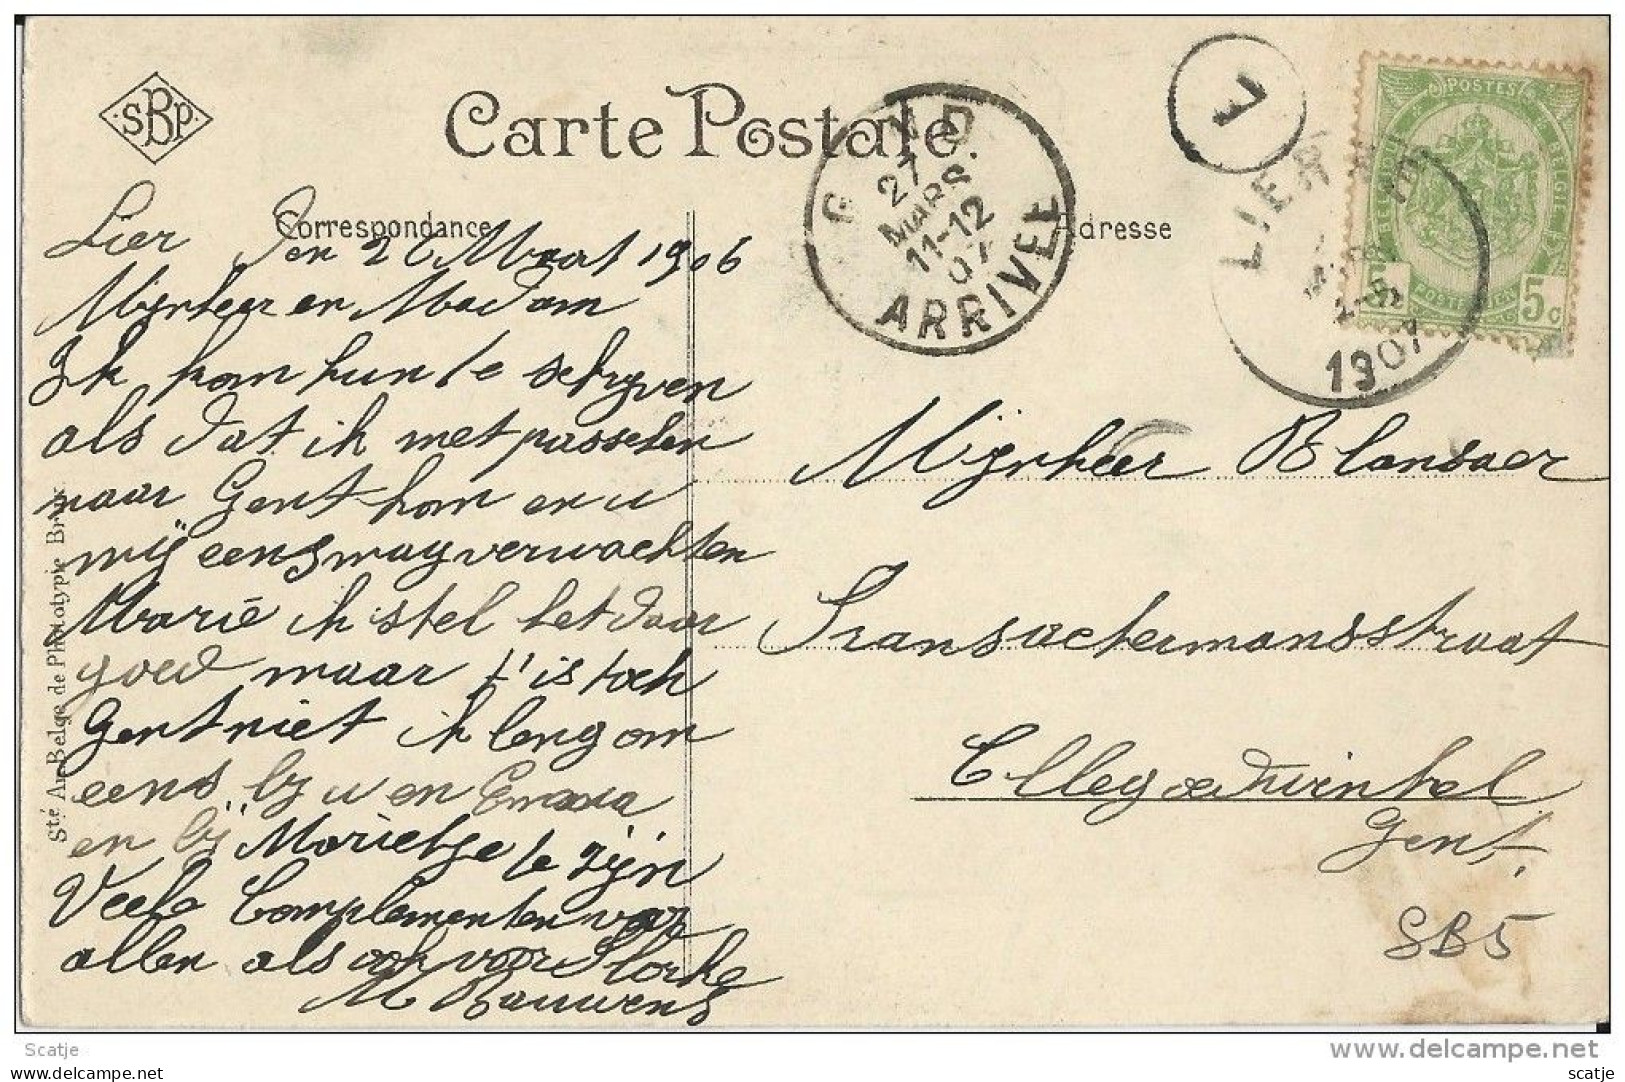 SBP
Carte Postale
Correspondance
Adresse
Lier Den 26 Maart 1906
Mijnheer en Madam
Ik kom hun te schryven
als dat ik met passchen
naar Gent kom en u
mij eens mag verwachten
Marie ik stel het daar
goed maar t'is toch
Gent niet ik leng om
eens by u en Emma
en bij Marietje te zijn
Veele Complementen voor
allen als ook voor Florke
M Bauwens
Mijnheer Blansaer
Transvaetermansstraat
Elleg
Gent.
SB5
Sté An Belge de Phototypie Brux.
G ND
27
MARS
11-12
07
ARRIVEE
7
LIER
1907
POSTES
BELGIQUE
BELGIE
5c
Scatje
scatje
www.delcampe.net
scatje